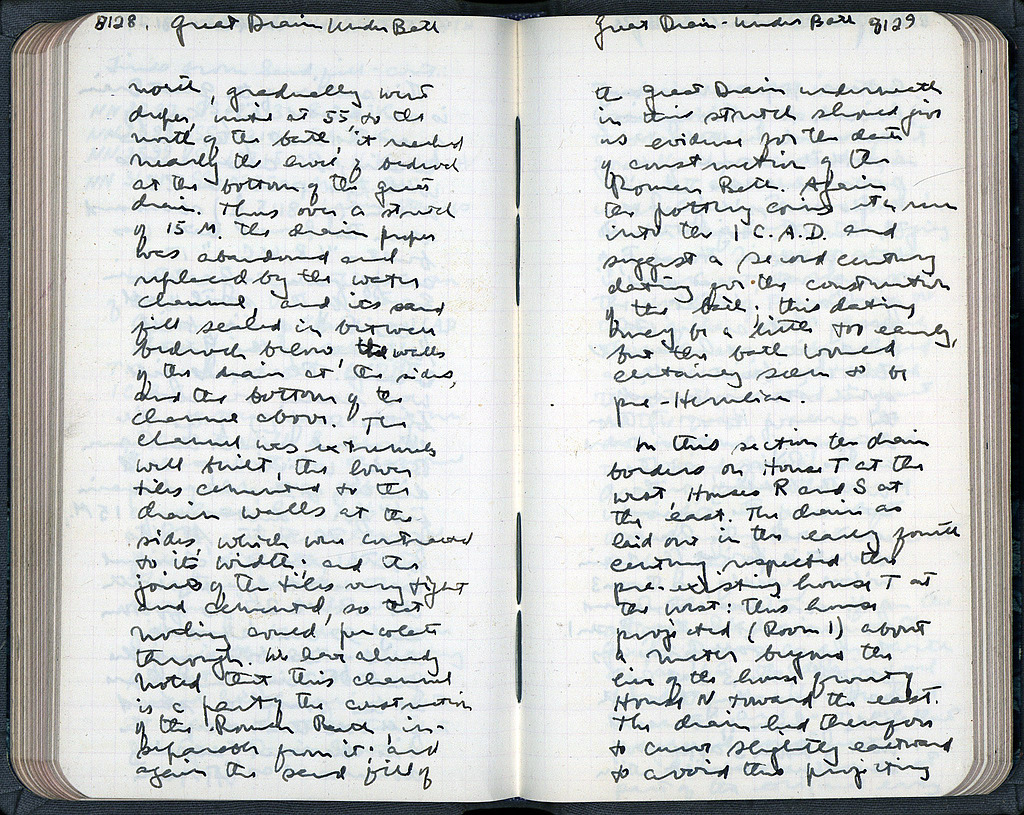 8128. Great Drain Under Bath
north, gradually went
deeper, until at 55 to the
north of the bath it reached
nearly the level of bedrock
at the bottom of the great
drain. Thus over a stretch
of 15 M. the drain proper
was abandoned and
replaced by the water
channel, and its sand
fill sealed in between
bedrock below, the walls
of the drain at the sides,
and the bottom of the
channel above. The
channel was extremely
well built, the lower
tiles cemented to the
drain walls at the
sides, which were contracted
to its width; and the
joints of the tiles very tight
and cemented, so that
nothing could percolate
through. We have already
noted that this channel
is a part of the construction
of the Roman Bath, in-
separable from it; and
again the sand fill of
Great Drain - Under Bath 8129
the Great Drain underneath
in this stretch should give
us evidence for the date
of construction of the
Roman Bath. Again
the pottery coins etc. run
into the 1 C. A.D. and
suggest a second century
dating for the construction
of the bath; this dating
may be a little too early,
but the bath would
certainly seem to be
pre-Herulian.
In this section the drain
borders on House T at the
west, Houses R and S at
the east. The drain as
laid out in the early fourth
century respected the
pre-existing house T at
the west: this house
projected (Room 1) about
a meter beyond the
line of the house fronting
House N toward the east.
The drain had therefore
to curve slightly eastward
to avoid this projecting